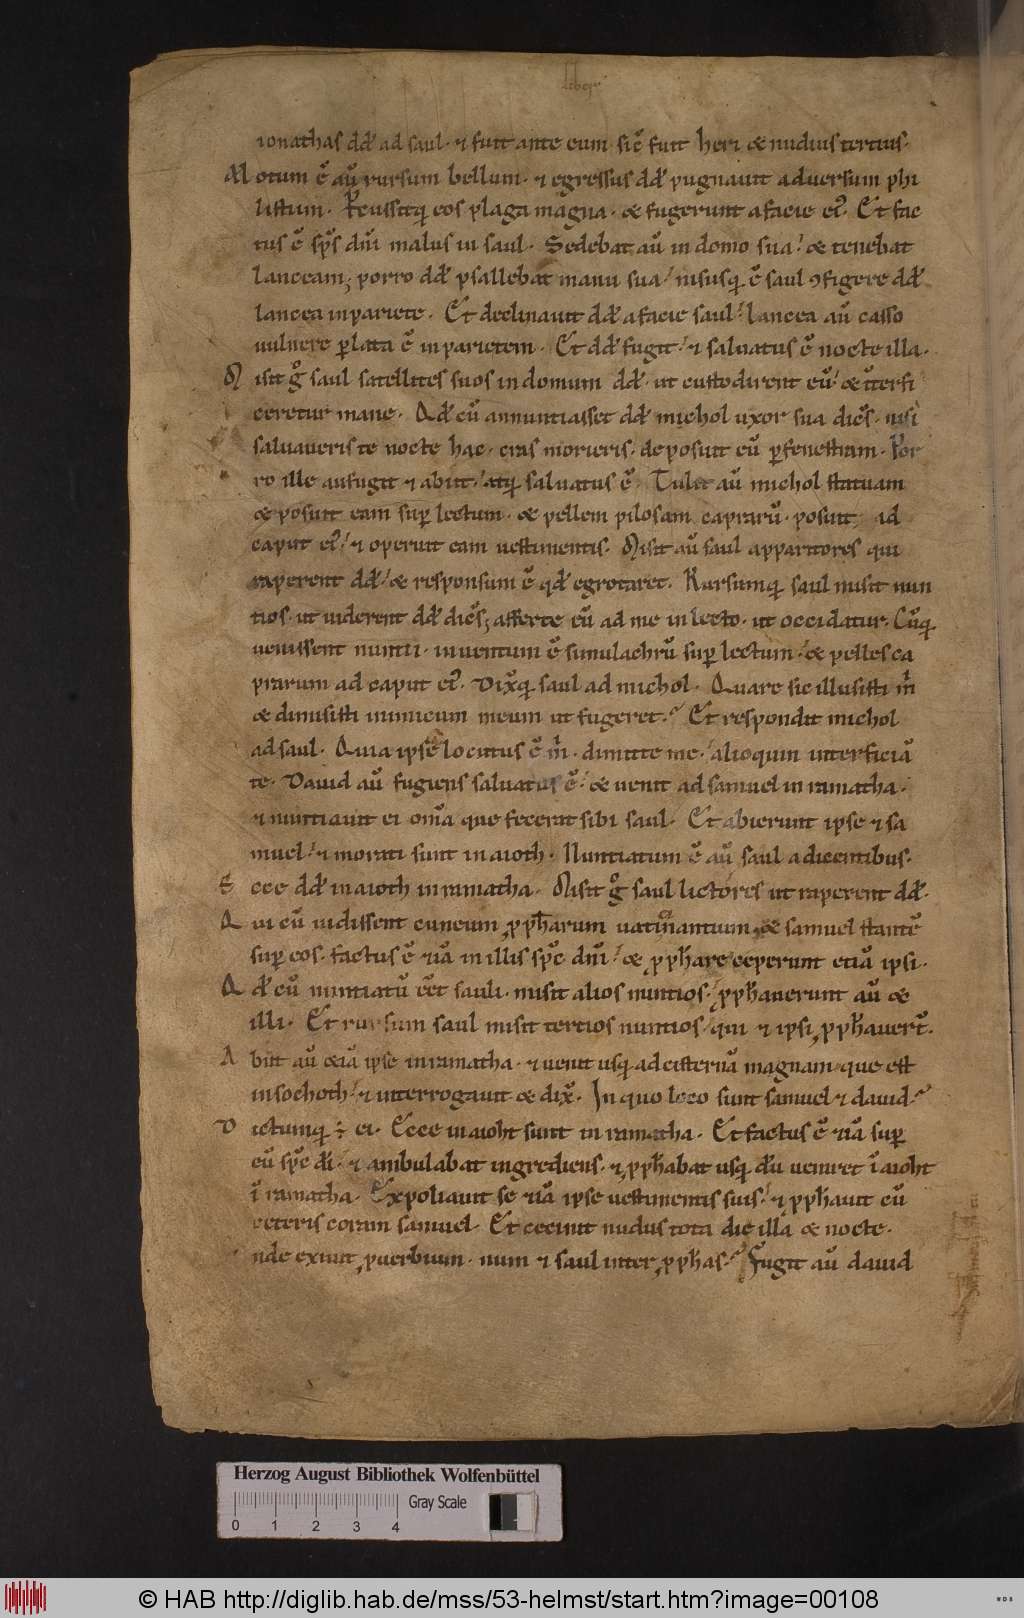 liber
ionathas dđ ad saul · ⁊ fuit ante eum sic̄ fuit heri & nudius tertius ·
Motum ē aū rursum bellum · ⁊ egressus dđ pugnauit aduersum phi
listium · Percussitq; eos plaga magna · & fugerunt a facie ei᷒ · Et fac
tus ē sp̄s dn̄i malus in saul · Sedebat aū in domo sua · & tenebat
lanceam; porro dđ psallebat manu sua · nisusq; ē saul ꝯfigere dđ
lancea in pariete · Et declinauit dđ a facie saul · lancea aū casso
uulnere ꝑlata ē in parietem · Et dđ fugit · ⁊ saluatus ē nocte illa ·
Misit gͦ saul satellites suos in domum dđ · ut custodirent eū · & īterfi
ceretur mane · Qđ cū annuntiasset dđ michol uxor sua dicēs · nisi
saluaueris te nocte hac · cras morieris · deposuit eū ꝑ fenestram · Por
ro ille aufugit ⁊ abiit · atq; saluatus ē · Tulit aū michol statuam
& posuit eam suꝑ lectum · & pellem pilosam caprarū · posuit ad
caput ei᷒ · ⁊ operuit eam uestimentis · Misit aū saul apparitores qui
raperent dđ · & responsum ē qđ egrotaret · Rursumq; saul misit nun
tios · ut uiderent dđ dicēs; afferte eū ad me in lecto · ut occidatur · Cūq;
uenissent nuntii · inuentum ē simulachrū suꝑ lectum · & pelles ca
prarum ad caput ei᷒ · Dix̄q; saul ad michol · Quare sic illusisti m̄
& dimisisti inimicum meum ut fugeret · Et respondit michol
ad saul · Quia ipse locutus ē m̄ · dimitte me · alioquin interficiā
te · Dauid aū fugiens saluatus ē · & uenit ad samuel in ramatha ·
⁊ nuntiauit ei om̄a que fecerat sibi saul · Et abierunt ipse ⁊ sa
muel · ⁊ morati sunt in aioth · Nuntiatum ē aū saul a dicentibus ·
Ecce dđ in aioth in ramatha · Misit gͦ saul lictores ut raperent dđ ·
Qui cū uidissent cuneum ꝓph̄arum uaticinantium · & samuel stantē
suꝑ eos · factus ē etiā in illis sp̄c dn̄i · & ꝓph̄are ceperunt etiā ipsi ·
Qđ cū nuntiatū eēt sauli · misit alios nuntios · ꝓph̄auerunt aū &
illi · Et rursum saul misit tertios nuntios · qui ⁊ ipsi ꝓph̄auerт̄ ·
Abiit aū &iā ipse in ramatha · ⁊ uenit usq; ad cisternā magnam que est
in sochoth · ⁊ interrogauit & dix̄ · In quo loco sunt samuel ⁊ dauid
Dictumq; ÷ ei · Ecce in aioht sunt in ramatha · Et factus ē etiā suꝑ
eū sp̄c dī · ⁊ ambulabat ingrediens · ⁊ ꝓph̄abat usq; dū ueniret ī aioht
ī ramatha · Expoliauit se etiā ipse uestimentis suis · ⁊ ꝓph̄auit cū
ceteris coram samuel · Et cecinit nudus tota die illa & nocte ·
nde exiuit ꝓuerbium · num ⁊ saul inter ꝓph̄as · Fugit aū dauid
Herzog August Bibliothek Wolfenbüttel
Gray Scale
0 1 2 3 4
© HAB http://diglib.hab.de/mss/53-helmst/start.htm?image=00108